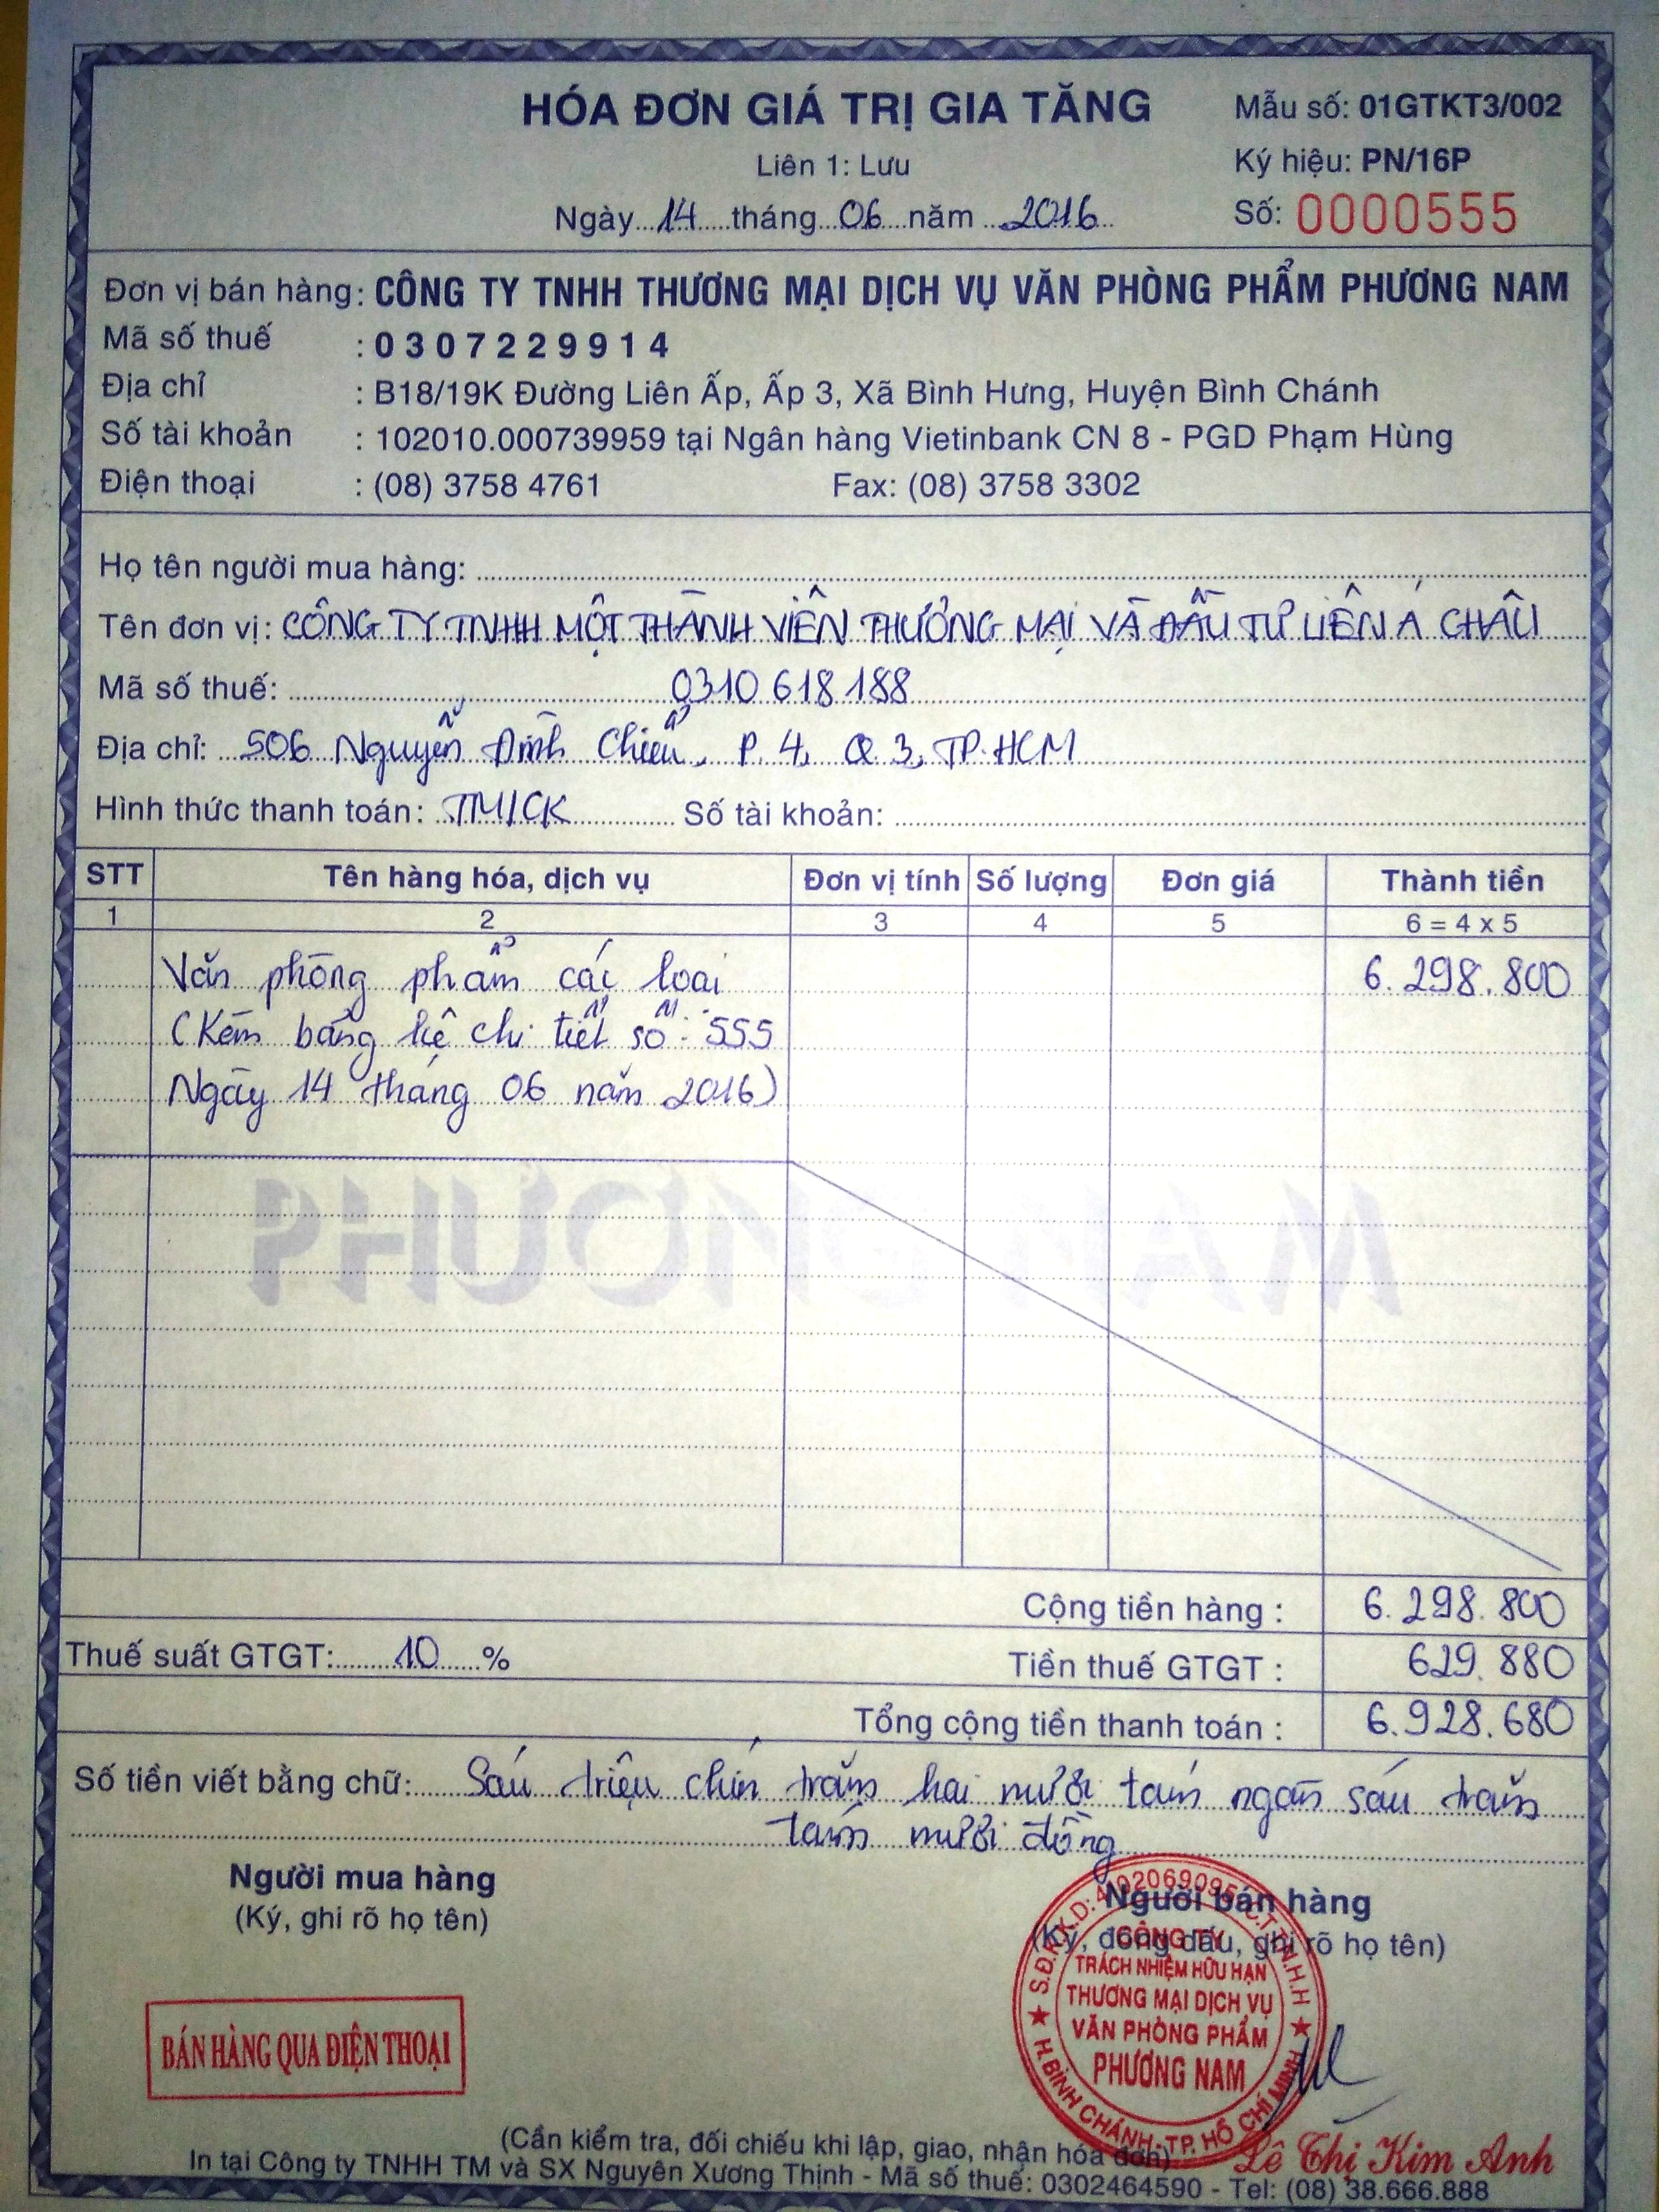 HÓA ĐƠN GIÁ TRỊ GIA TĂNG
Mẫu số: 01GTKT3/002
Liên 1: Lưu
Ký hiệu: PN/16P
Ngày 14 tháng 06 năm 2016
Số: 0000555
Đơn vị bán hàng: CÔNG TY TNHH THƯƠNG MẠI DỊCH VỤ VĂN PHÒNG PHẨM PHƯƠNG NAM
Mã số thuế : 0307229914
Địa chỉ : B18/19K Đường Liên Ấp, Ấp 3, Xã Bình Hưng, Huyện Bình Chánh
Số tài khoản : 102010.000739959 tại Ngân hàng Vietinbank CN 8 - PGD Phạm Hùng
Điện thoại : (08) 3758 4761 Fax: (08) 3758 3302
Họ tên người mua hàng:
Tên đơn vị: CÔNG TY TNHH MỘT THÀNH VIÊN THƯƠNG MẠI VÀ ĐẦU TƯ LIÊN Á CHÂU
Mã số thuế: 0310618188
Địa chỉ: 506 Nguyễn Đình Chiểu, P.4, Q3, TP.HCM
Hình thức thanh toán: TM/CK Số tài khoản:
STT Tên hàng hóa, dịch vụ Đơn vị tính Số lượng Đơn giá Thành tiền
1 2 3 4 5 6 = 4 x 5
Văn phòng phẩm các loại 6.298.800
(Kèm bảng kê chi tiết số: 555
Ngày 14 tháng 06 năm 2016)
PHƯƠNG NAM
Cộng tiền hàng : 6.298.800
Thuế suất GTGT: 10 % Tiền thuế GTGT : 629.880
Tổng cộng tiền thanh toán : 6.928.680
Số tiền viết bằng chữ: Sáu triệu chín trăm hai mươi tám ngàn sáu trăm
tám mươi đồng
Người mua hàng
(Ký, ghi rõ họ tên)
Người bán hàng
(Ký, đóng dấu, ghi rõ họ tên)
S.Đ.K.K.D: 4102069095-C.T.T.N.H.H
CÔNG TY
TRÁCH NHIỆM HỮU HẠN
THƯƠNG MẠI DỊCH VỤ
VĂN PHÒNG PHẨM
PHƯƠNG NAM
H.BÌNH CHÁNH-T.P. HỒ CHÍ MINH
BÁN HÀNG QUA ĐIỆN THOẠI
Lê Thị Kim Anh
(Cần kiểm tra, đối chiếu khi lập, giao, nhận hóa đơn)
In tại Công ty TNHH TM và SX Nguyên Xương Thịnh - Mã số thuế: 0302464590 - Tel: (08) 38.666.888